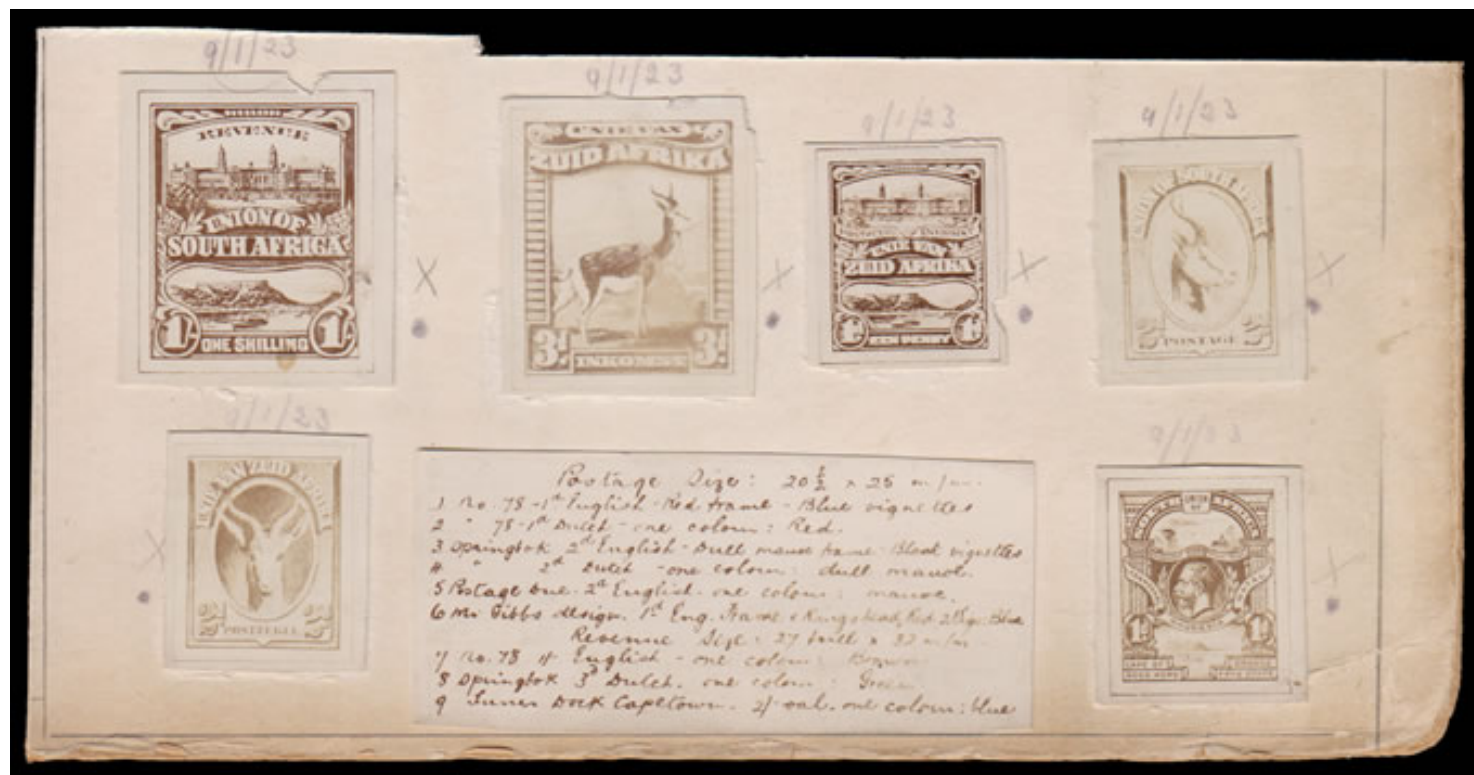 9/1/23
9/1/23
9/1/23
9/1/23
REVENUE
UNION OF
SOUTH AFRICA
1/- 1/-
ONE SHILLING
UNIE VAN
ZUID AFRIKA
3d 3d
INKOMST
UNIE VAN
ZUID AFRIKA
1d 1d
EEN PENNY
POSTAGE
X
X
X
X
9/1/23
UNIE VAN ZUID AFRIKA
POSTZEGEL
X
Postage Size: 20 1/2 x 25 m/m.
1 No. 78 - 1d English - Red frame - Blue vignettes
2 " 78 - 1d Dutch - one colour: Red.
3 Springbok 2d English - Dull mauve frame - Black vignettes
4 " 2d Dutch - one colour: dull mauve.
5 Postage Due. 2d English. one colour: mauve.
6 Mr Gibbs design. 1d Eng. Frame & Kings head, Red 2 Vign: Blue
Revenue Size: 27 x 32 m/m
7 No. 78 1/- English - one colour: Brown
8 Springbok 3d Dutch. one colour: Green
9 Inner Dock Capetown. 2/- one colour: blue
9/1/23
UNION
OF
1d 1d
CAPE OF
GOOD HOPE
ORANGE
FREE STATE
X